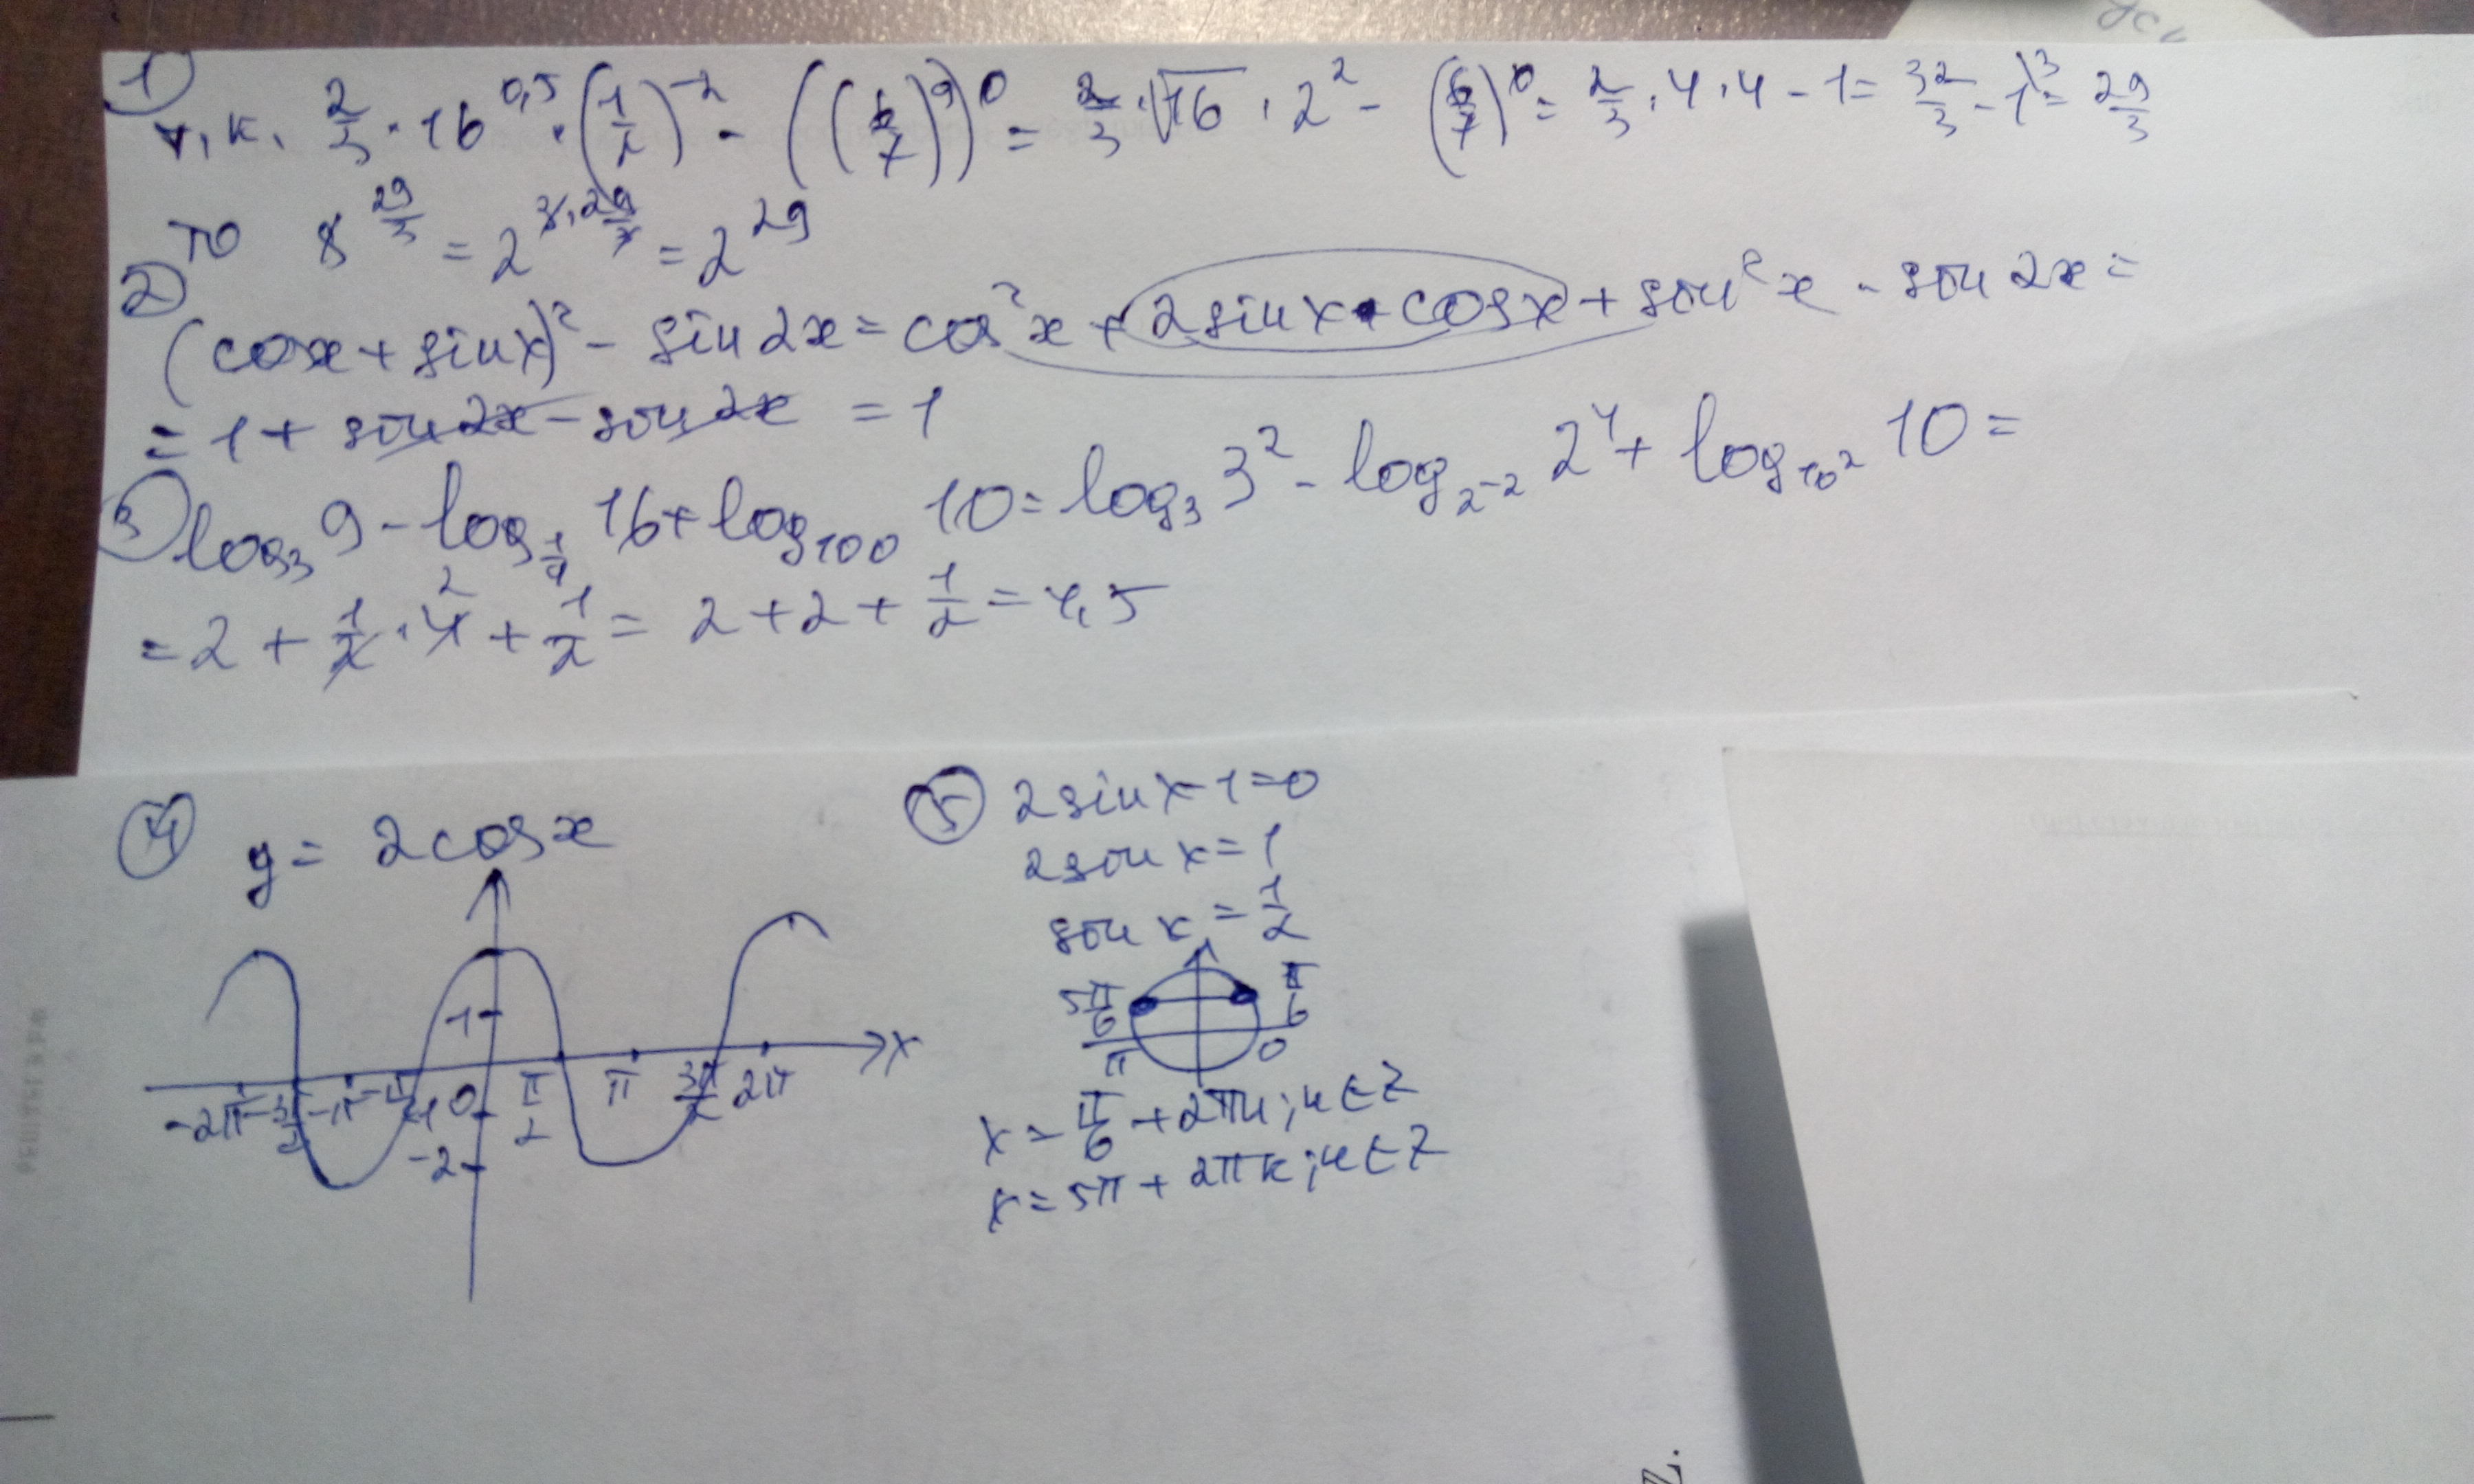 1)
т.к. 2/3 · 16^0,5 · (1/2)^-2 - ((6/7)^9)^0 = 2/3 · √16 · 2^2 - (6/7)^0 = 2/3 · 4 · 4 - 1 = 32/3 - 1^\3 = 29/3
то 8^29/3 = 2^3·29/3 = 2^29
2)
(cosx + sinx)^2 - sin2x = cos^2x + 2sinx·cosx + sin^2x - sin2x =
= 1 + sin2x - sin2x = 1
3) log_3 9 - log_1/4 16 + log_100 10 = log_3 3^2 - log_2^-2 2^4 + log_10^2 10 =
= 2 + 1/2 · 4^2 + 1/2 = 2 + 2 + 1/2 = 4,5
4) y = 2cosx
1
x
-2π -3π/2 -π 0 π/2 π 3π/2 2π
-1
-2
5) 2sinx-1=0
2sinx=1
sinx=1/2
5π/6 π/6
π 0
x=π/6+2πn;n∈Z
x=5π+2πk;k∈Z
Z.